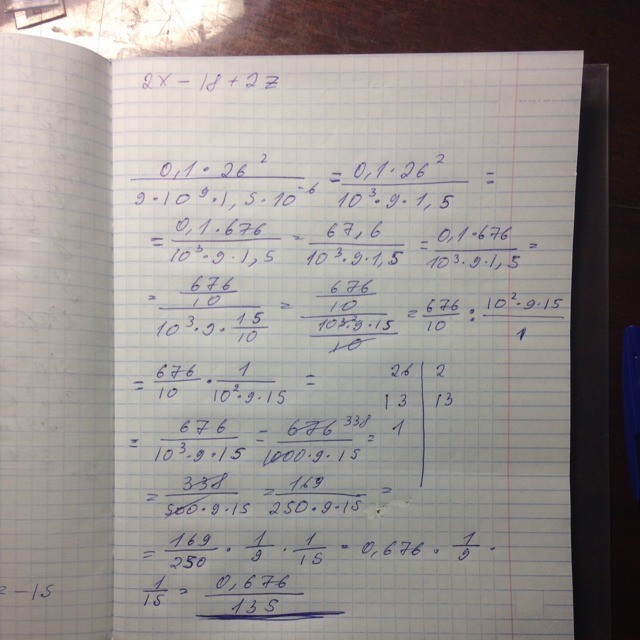 2x - 18 + 2z
0,1 · 26² / 9 · 10⁹ · 1,5 · 10⁻⁶ = 0,1 · 26² / 10³ · 9 · 1,5 =
= 0,1 · 676 / 10³ · 9 · 1,5 = 67,6 / 10³ · 9 · 1,5 = 0,1 · 676 / 10³ · 9 · 1,5 =
= 676/10 / 10³ · 9 · 15/10 = 676/10 / 10³ ² · 9 · 15/10 = 676/10 : 10² · 9 · 15 / 1
= 676/10 · 1 / 10² · 9 · 15 =
26 | 2
13 | 13
1 |
= 676 / 10³ · 9 · 15 = 676 338 / 1000 · 9 · 15 =
= 338 / 500 · 9 · 15 = 169 / 250 · 9 · 15 =
= 169/250 · 1/9 · 1/15 = 0,676 · 1/9 ·
1/15 = 0,676 / 135
= -15